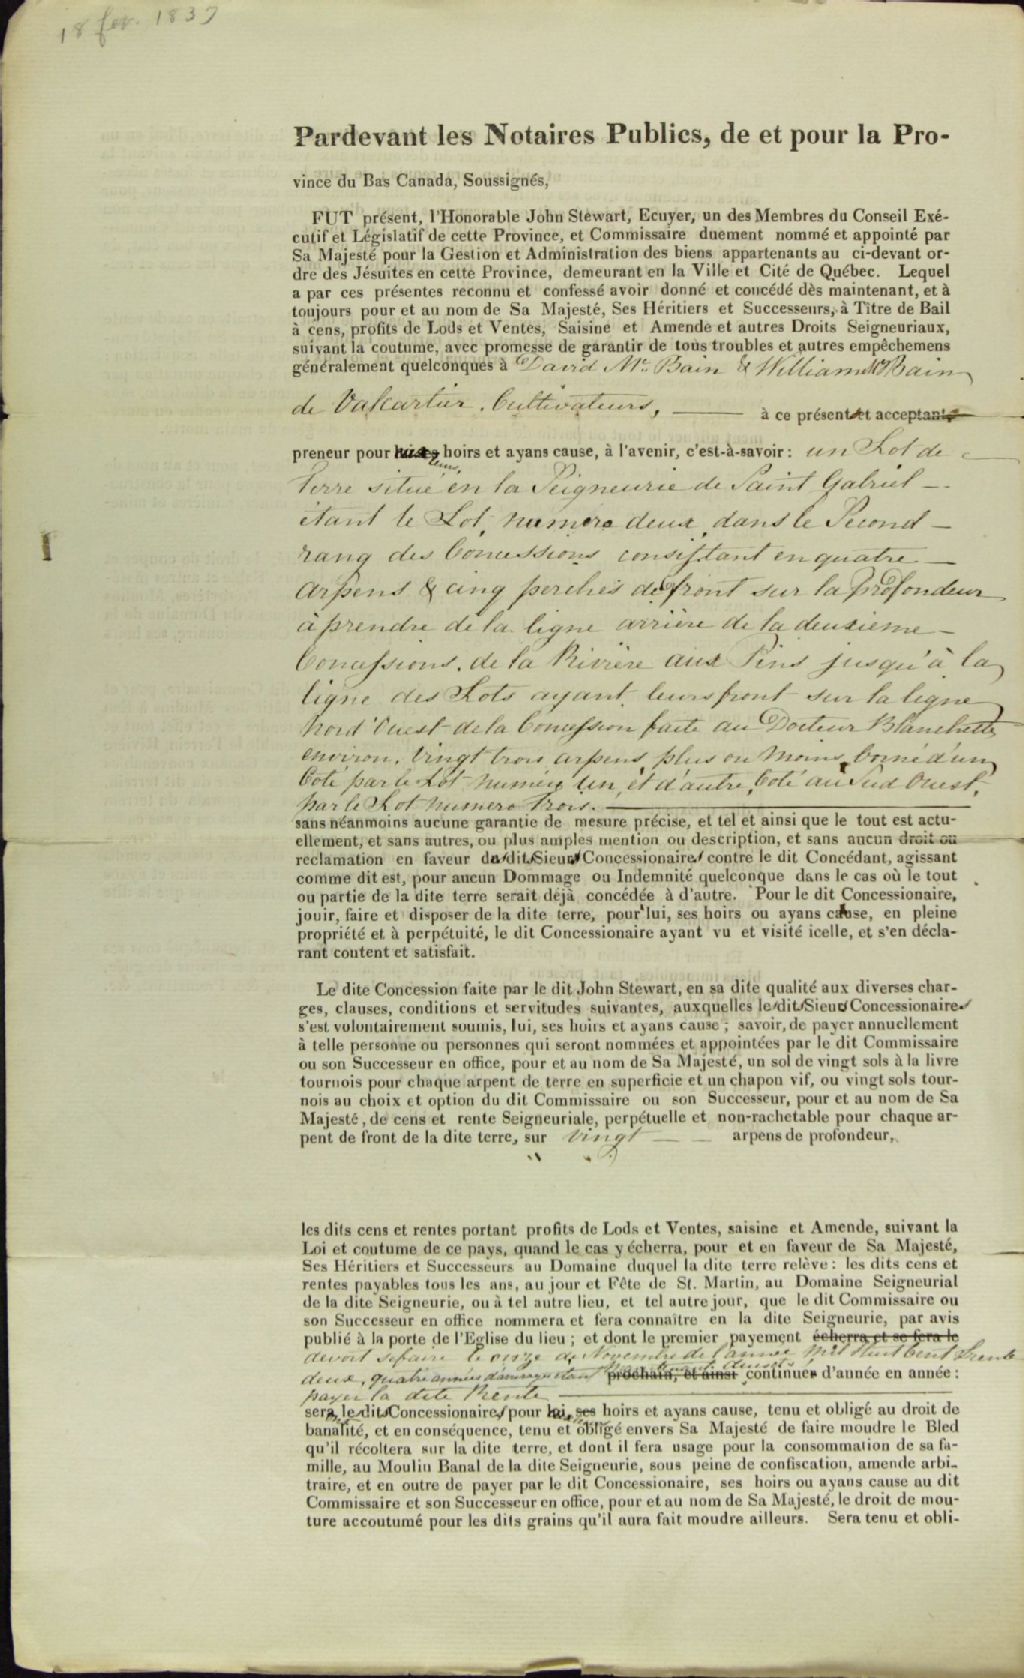 18 fev. 1837
Pardevant les Notaires Publics, de et pour la Pro-
vince du Bas Canada, Soussignés,
FUT présent, l'Honorable John Stewart, Ecuyer, un des Membres du Conseil Exé-
cutif et Législatif de cette Province, et Commissaire duement nommé et appointé par
Sa Majesté pour la Gestion et Administration des biens appartenants au ci-devant or-
dre des Jésuites en cette Province, demeurant en la Ville et Cité de Québec. Lequel
a par ces présentes reconnu et confessé avoir donné et concédé dès maintenant, et à
toujours pour et au nom de Sa Majesté, Ses Héritiers et Successeurs, à Titre de Bail
à cens, profits de Lods et Ventes, Saisine et Amende et autres Droits Seigneuriaux,
suivant la coutume, avec promesse de garantir de tous troubles et autres empêchemens
généralement quelconques à David Mc Bain & William Mc Bain
de Valcartier, Cultivateurs, à ce présent et acceptant
preneur pour leurs hoirs et ayans cause, à l'avenir, c'est-à-savoir: un Lot de
Terre situé en la Seigneurie de Saint Gabriel
étant le Lot numéro deux dans le Second
rang des Concessions consistant en quatre
arpens & cinq perches de front sur la profondeur
à prendre de la ligne arrière de la deuxieme
Concessions de la Rivière aux Pins jusqu'à la
ligne des Lots ayant leurs front sur la ligne
Nord Ouest de la Concession faite au Docteur Blanchette
environ vingt trois arpens plus ou moins, borné d'un
Coté par le Lot numéro Un, et d'autre Coté au Sud Ouest,
par le Lot numero trois.
sans néanmoins aucune garantie de mesure précise, et tel et ainsi que le tout est actu-
ellement, et sans autres, ou plus amples mention ou description, et sans aucun droit ou
reclamation en faveur des dits Sieurs Concessionaires contre le dit Concédant, agissant
comme dit est, pour aucun Dommage ou Indemnité quelconque dans le cas où le tout
ou partie de la dite terre serait déjà concédée à d'autre. Pour le dit Concessionaire,
jouir, faire et disposer de la dite terre, pour lui, ses hoirs ou ayans cause, en pleine
propriété et à perpétuité, le dit Concessionaire ayant vu et visité icelle, et s'en décla-
rant content et satisfait.
Le dite Concession faite par le dit John Stewart, en sa dite qualité aux diverses char-
ges, clauses, conditions et servitudes suivantes, auxquelles les dits Sieurs Concessionaires
s'est volontairement soumis, lui, ses hoirs et ayans cause; savoir, de payer annuellement
à telle personne ou personnes qui seront nommées et appointées par le dit Commissaire
ou son Successeur en office, pour et au nom de Sa Majesté, un sol de vingt sols à la livre
tournois pour chaque arpent de terre en superficie et un chapon vif, ou vingt sols tour-
nois au choix et option du dit Commissaire ou son Successeur, pour et au nom de Sa
Majesté, de cens et rente Seigneuriale, perpétuelle et non-rachetable pour chaque ar-
pent de front de la dite terre, sur vingt arpens de profondeur,
les dits cens et rentes portant profits de Lods et Ventes, saisine et Amende, suivant la
Loi et coutume de ce pays, quand le cas y écherra, pour et en faveur de Sa Majesté,
Ses Héritiers et Successeurs au Domaine duquel la dite terre relève: les dits cens et
rentes payables tous les ans, au jour et Fête de St. Martin, au Domaine Seigneurial
de la dite Seigneurie, ou à tel autre lieu, et tel autre jour, que le dit Commissaire ou
son Successeur en office nommera et fera connaître en la dite Seigneurie, par avis
publié à la porte de l'Eglise du lieu; et dont le premier payement écherra et se fera le
devoit se faire le onze de Novembre de l'année Mil Huit Cent Trente
deux, quatre années d'arrérages étant prochain, et ainsi continuer d'année en année:
payer la dite Rente
sera les dits Concessionaires pour lui, ses hoirs et ayans cause, tenu et obligé au droit de
banalité, et en conséquence, tenu et obligé envers Sa Majesté de faire moudre le Bled
qu'il récoltera sur la dite terre, et dont il fera usage pour la consommation de sa fa-
mille, au Moulin Banal de la dite Seigneurie, sous peine de confiscation, amende arbi-
traire, et en outre de payer par le dit Concessionaire, ses hoirs ou ayans cause au dit
Commissaire et son Successeur en office, pour et au nom de Sa Majesté, le droit de mou-
ture accoutumé pour les dits grains qu'il aura fait moudre ailleurs. Sera tenu et obli-